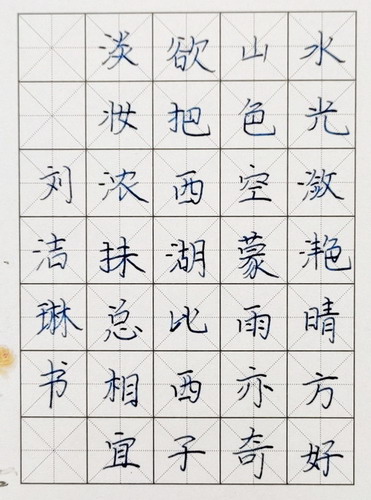 水光潋滟晴方好
山色空蒙雨亦奇
欲把西湖比西子
淡妆浓抹总相宜
刘洁琳书